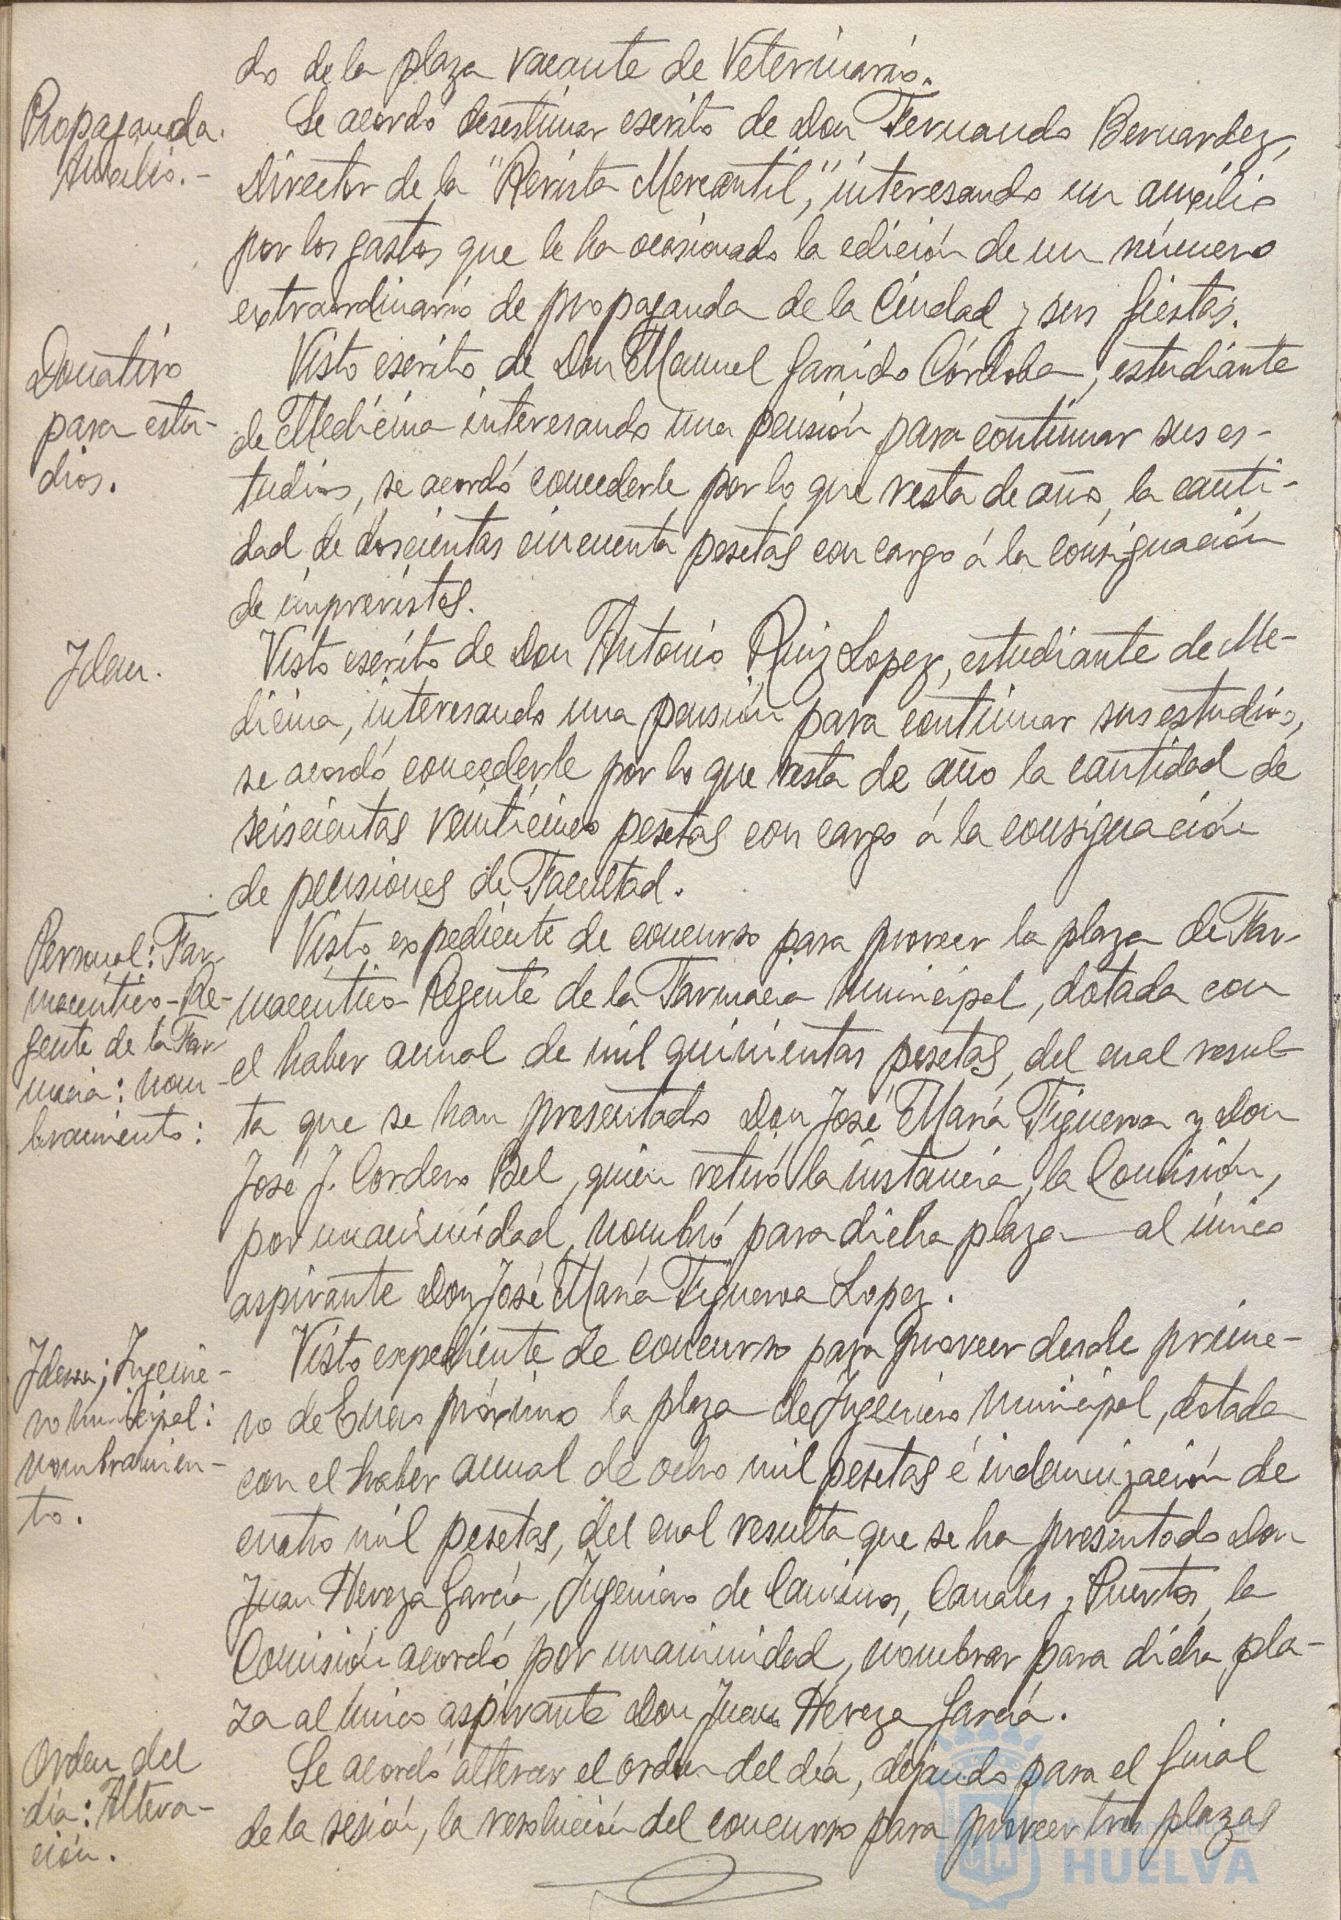 do de la plaza vacante de Veterinario.
Propaganda.
Auxilio.-
Se acordó desestimar escrito de Don Fernando Bernardez,
Director de la "Revista Mercantil," interesando un auxilio
por los gastos que le ha ocasionado la edición de un número
extraordinario de propaganda de la Ciudad y sus fiestas.
Donativo
para estu-
dios.
Visto escrito de Don Manuel Garrido Córdoba, estudiante
de Medicina interesando una pensión para continuar sus es-
tudios, se acordó concederle, por lo que resta de año, la canti-
dad de doscientas cincuenta pesetas con cargo á la consignación
de imprevistos.
Idem.
Visto escrito de Don Antonio Ruiz Lopez, estudiante de Me-
dicina, interesando una pensión para continuar sus estudios,
se acordó concederle por lo que resta de año la cantidad de
seiscientas veinticinco pesetas con cargo á la consignación
de pensiones de Facultad.
Personal: Far-
maceutico-Re-
gente de la Far-
macia: nom-
bramiento:
Visto expediente de concurso para proveer la plaza de Far-
maceutico Regente de la Farmacia municipal, dotada con
el haber anual de mil quinientas pesetas, del cual resul-
ta que se han presentado Don José María Figueroa y Don
José J. Cordero Bel, quien retiró la instancia, la Comisión,
por unanimidad, nombró para dicha plaza al único
aspirante Don José María Figueroa Lopez.
Idem; Ingenie-
ro municipal:
nombramien-
to.
Visto expediente de concurso para proveer desde prime-
ro de Enero próximo la plaza de Ingeniero municipal, dotada
con el haber anual de ocho mil pesetas é indemnización de
cuatro mil pesetas, del cual resulta que se ha presentado Don
Juan Hereza García, Ingeniero de Caminos, Canales y Puertos, la
Comisión acordó por unanimidad, nombrar para dicha pla-
za al único aspirante Don Juan Hereza García.
Orden del
día: Altera-
ción.
Se acordó alterar el orden del día, dejando para el final
de la sesión, la resolución del concurso para proveer tres plazas
HUELVA